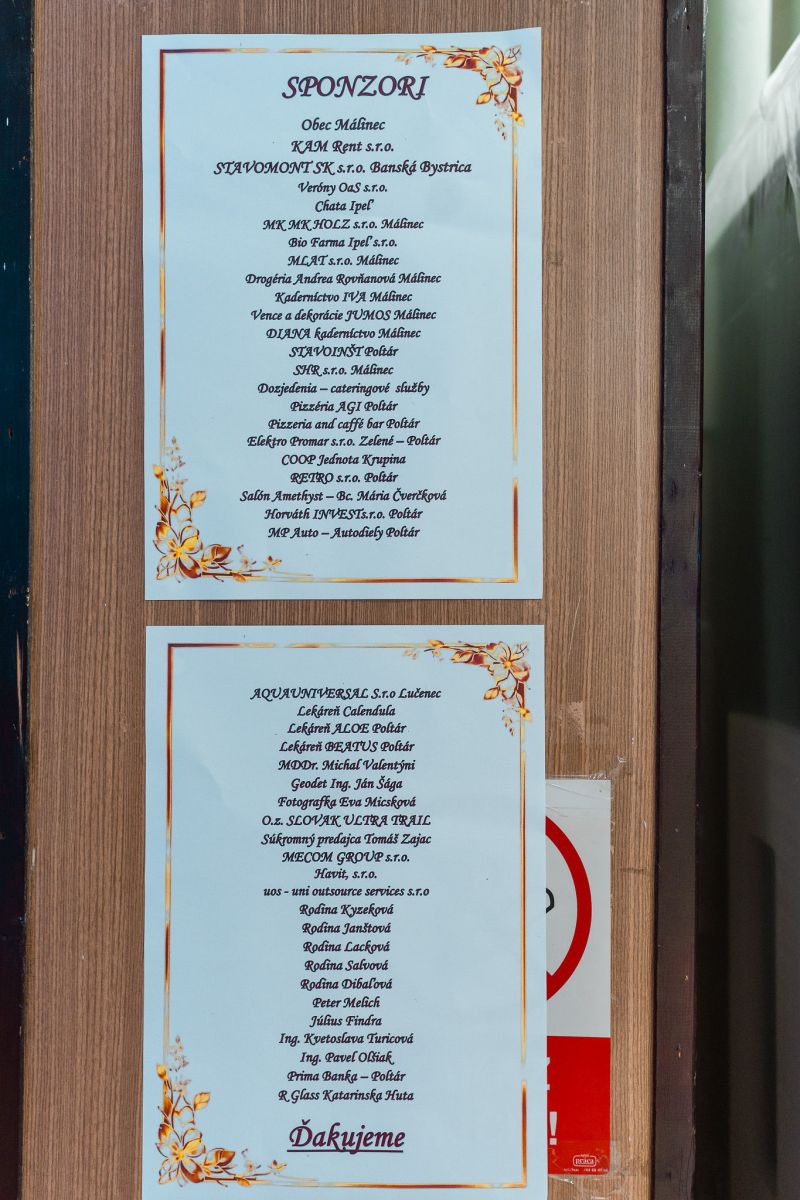 SPONZORI
Obec Málinec
KAM Rent s.r.o.
STAVOMONT SK s.r.o. Banská Bystrica
Veróny OaS s.r.o.
Chata Ipeľ
MK MK HOLZ s.r.o. Málinec
Bio Farma Ipeľ s.r.o.
MLAT s.r.o. Málinec
Drogéria Andrea Rovňanová Málinec
Kaderníctvo IVA Málinec
Vence a dekorácie JUMOS Málinec
DIANA kaderníctvo Málinec
STAVOINŠT Poltár
SHR s.r.o. Málinec
Dozjedenia – cateringové služby
Pizzéria AGI Poltár
Pizzeria and caffé bar Poltár
Elektro Promar s.r.o. Zelené – Poltár
COOP Jednota Krupina
RETRO s.r.o. Poltár
Salón Amethyst – Bc. Mária Čverčková
Horváth INVESTs.r.o. Poltár
MP Auto – Autodiely Poltár
AQUAUNIVERSAL S.r.o Lučenec
Lekáreň Calendula
Lekáreň ALOE Poltár
Lekáreň BEATUS Poltár
MDDr. Michal Valentýni
Geodet Ing. Ján Šága
Fotografka Eva Micsková
O.z. SLOVAK ULTRA TRAIL
Súkromný predajca Tomáš Zajac
MECOM GROUP s.r.o.
Havit, s.r.o.
uos - uni outsource services s.r.o
Rodina Kyzeková
Rodina Janštová
Rodina Lacková
Rodina Salvová
Rodina Dibaľová
Peter Melich
Július Findra
Ing. Kvetoslava Turicová
Ing. Pavel Olšiak
Prima Banka – Poltár
R Glass Katarinska Huta
Ďakujeme
!
práca